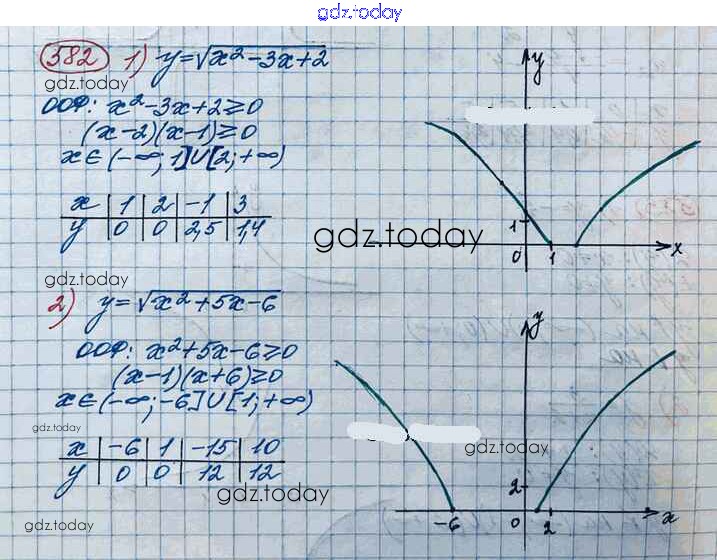 gdz.today
582 1) y=√x²-3x+2
gdz.today
ООФ: x²-3x+2⩾0
(x-2)(x-1)⩾0
x∈(-∞; 1]∪[2; +∞)
x | 1 | 2 | -1 | 3
y | 0 | 0 | 2,5 | 1,4
y
1
0 1 x
gdz.today
gdz.today
2) y=√x²+5x-6
ООФ: x²+5x-6⩾0
(x-1)(x+6)⩾0
x∈(-∞; -6]∪[1; +∞)
gdz.today
x | -6 | 1 | -15 | 10
y | 0 | 0 | 12 | 12
y
2
-6 0 2 x
gdz.today
gdz.today
gdz.today